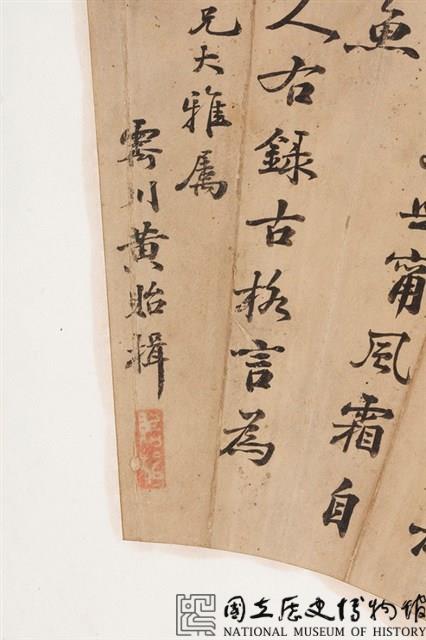 甯風霜自
魚
人右錄古格言為
兄大雅属
霽川黃貽楫
國立歷史博物館
NATIONAL MUSEUM OF HISTORY